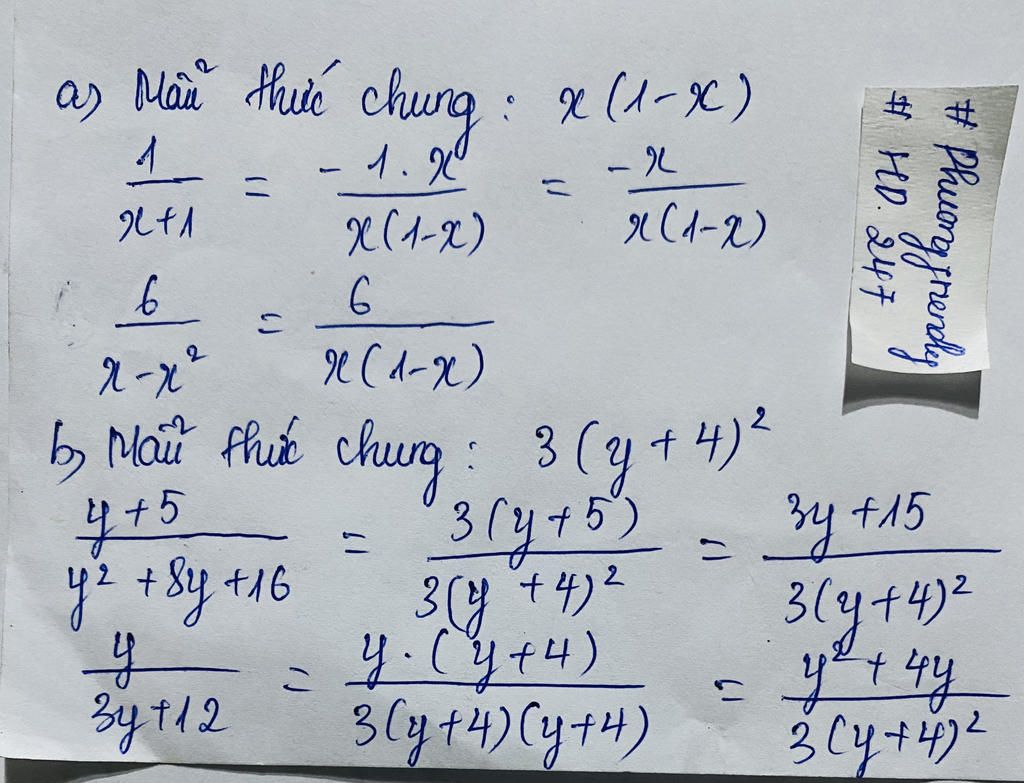 a) Mẫu thức chung : x(1-x)
1/(x+1) = (-1.x)/(x(1-x)) = (-x)/(x(1-x))
6/(x-x²) = 6/(x(1-x))
b) Mẫu thức chung : 3(y+4)²
(y+5)/(y²+8y+16) = (3(y+5))/(3(y+4)²) = (3y+15)/(3(y+4)²)
y/(3y+12) = (y.(y+4))/(3(y+4)(y+4)) = (y²+4y)/(3(y+4)²)
# Phuongfriendly
# HD. 247